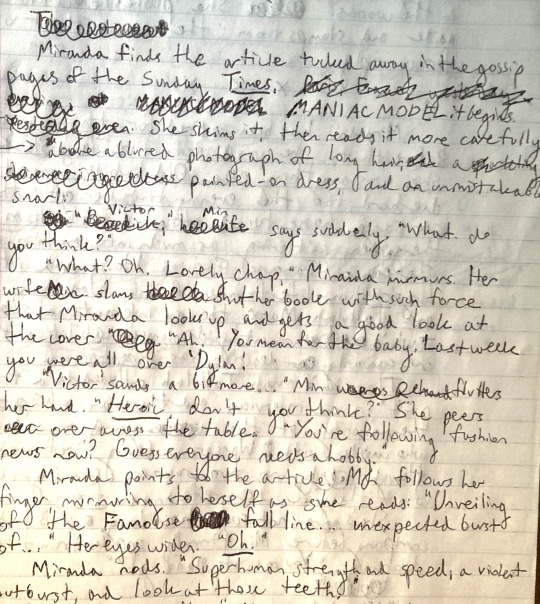 Miranda finds the article tucked away in the gossip
pages of the Sunday Times.
MANIAC MODEL, it begins.
She skims it, then reads it more carefully
above a blurred photograph of long hair, a
painted-on dress, and an unmistakable
snarl.
"Victor," Min says suddenly. "What do
you think?"
"What? Oh. Lovely chap," Miranda murmurs. Her
wife slams shut her book with such force
that Miranda looks up and gets a good look at
the cover. "Ah. You mean for the baby. Last week
you were all over 'Dylan'.
"'Victor' sounds a bit more..." Min flutters
her hand. "Heroic, don't you think?" She peers
over across the table. "You're following fashion
news now? Guess everyone needs a hobby."
Miranda points to the article. Min follows her
finger murmuring to herself as she reads: "Unveiling
of the Famouse fall line... unexpected burst
of..." Her eyes widen. "Oh."
Miranda nods. "Superhuman strength and speed, a violent
outburst, and look at those teeth."